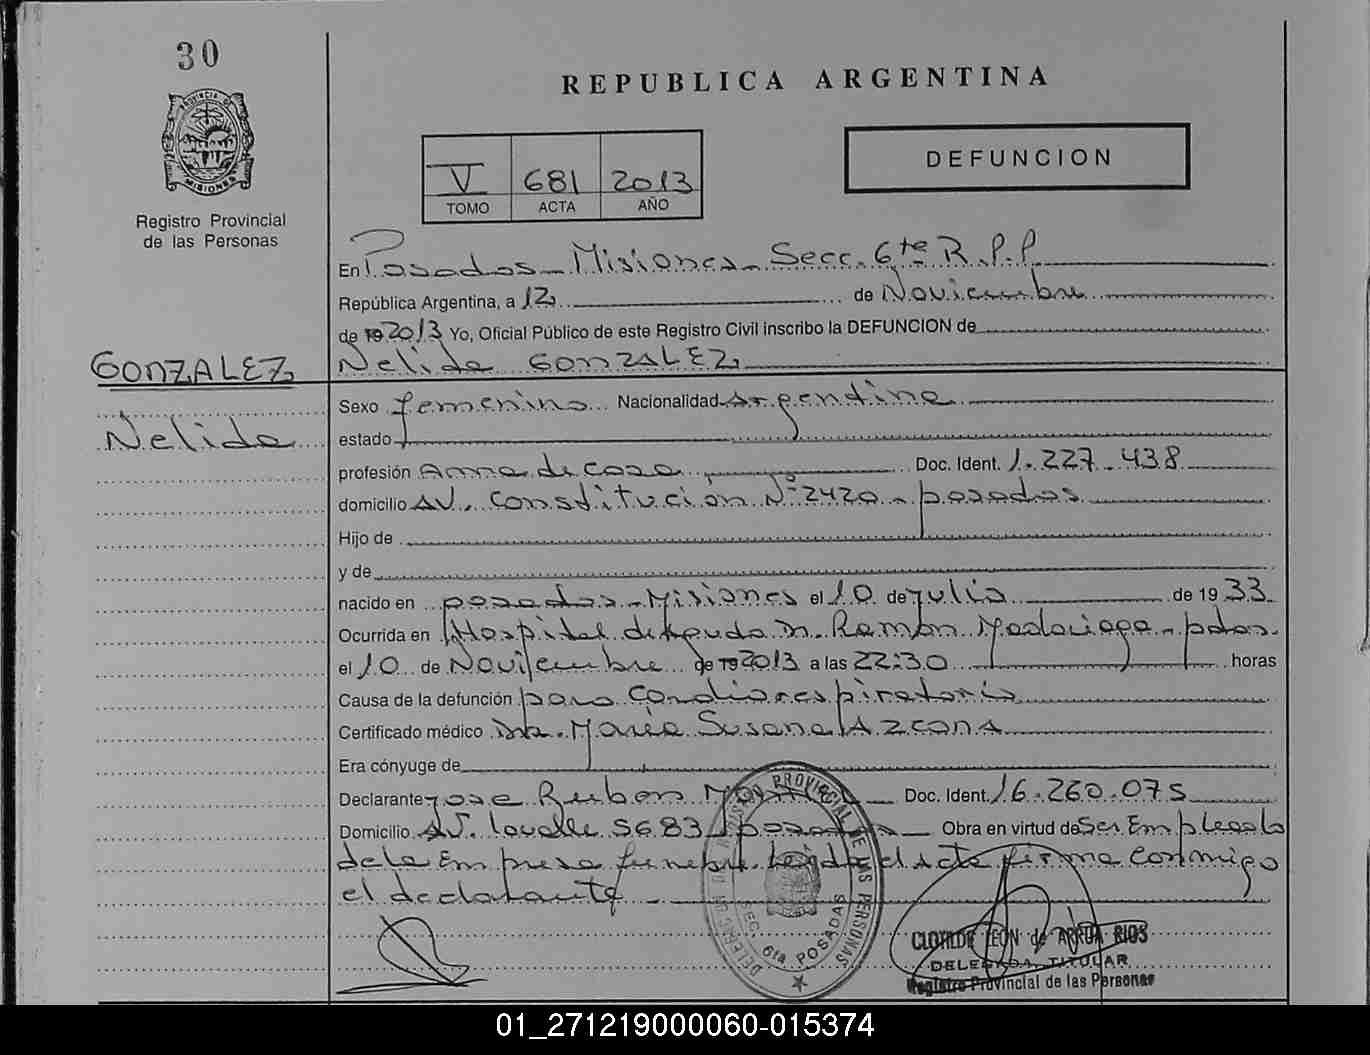 30
REPUBLICA ARGENTINA
PROVINCIA DE MISIONES
Registro Provincial
de las Personas
V 681 2013
TOMO ACTA AÑO
DEFUNCION
En Posadas - Misiones - Secc. 6te R.P.P
República Argentina, a 12 de Noviembre
de 19 2013 Yo, Oficial Público de este Registro Civil inscribo la DEFUNCION de
Nelida GONZALEZ
GONZALEZ
Nelida
Sexo femenino Nacionalidad Argentina
estado
profesión Ama de casa Doc. Ident. 1.227.438
domicilio AV. Constitucion Nº 2420 - posadas
Hijo de
y de
nacido en posadas - Misiones el 10 de Julio de 1933
Ocurrida en Hospital de Aguda Dr. Ramon Madariaga - pdas.
el 10 de Noviembre de 19 2013 a las 22:30 horas
Causa de la defunción paro cardiorespiratorio
Certificado médico Dra. María Susana AZCONA
Era cónyuge de
Declarante Jose Ruben Doc. Ident. 16.260.075
Domicilio AV. lavalle 5683 posadas Obra en virtud de Ser Empleado
de la Empresa funebre. Leida el acta firma conmigo
el declarante
REGISTRO PROVINCIAL DE LAS PERSONAS
SEC. 6ta POSADAS
CLOTILDE LEON de ARRUA RIOS
DELEGADA TITULAR
Registro Provincial de las Personas
01_271219000060-015374